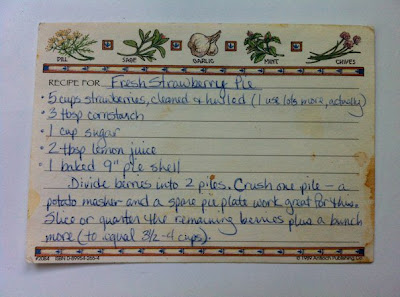 DILL SAGE GARLIC MINT CHIVES
RECIPE FOR Fresh Strawberry Pie
• 5 cups strawberries, cleaned & hulled (I use lots more, actually)
• 3 tbsp cornstarch
• 1 cup sugar
• 2 tbsp lemon juice
• 1 baked 9" pie shell
Divide berries into 2 piles. Crush one pile – a
potato masher and a spare pie plate work great for this.
Slice or quarter the remaining berries plus a bunch
more (to equal 3½-4 cups).
#2084 ISBN 0-89954-265-4 © 1989 Antioch Publishing Co.